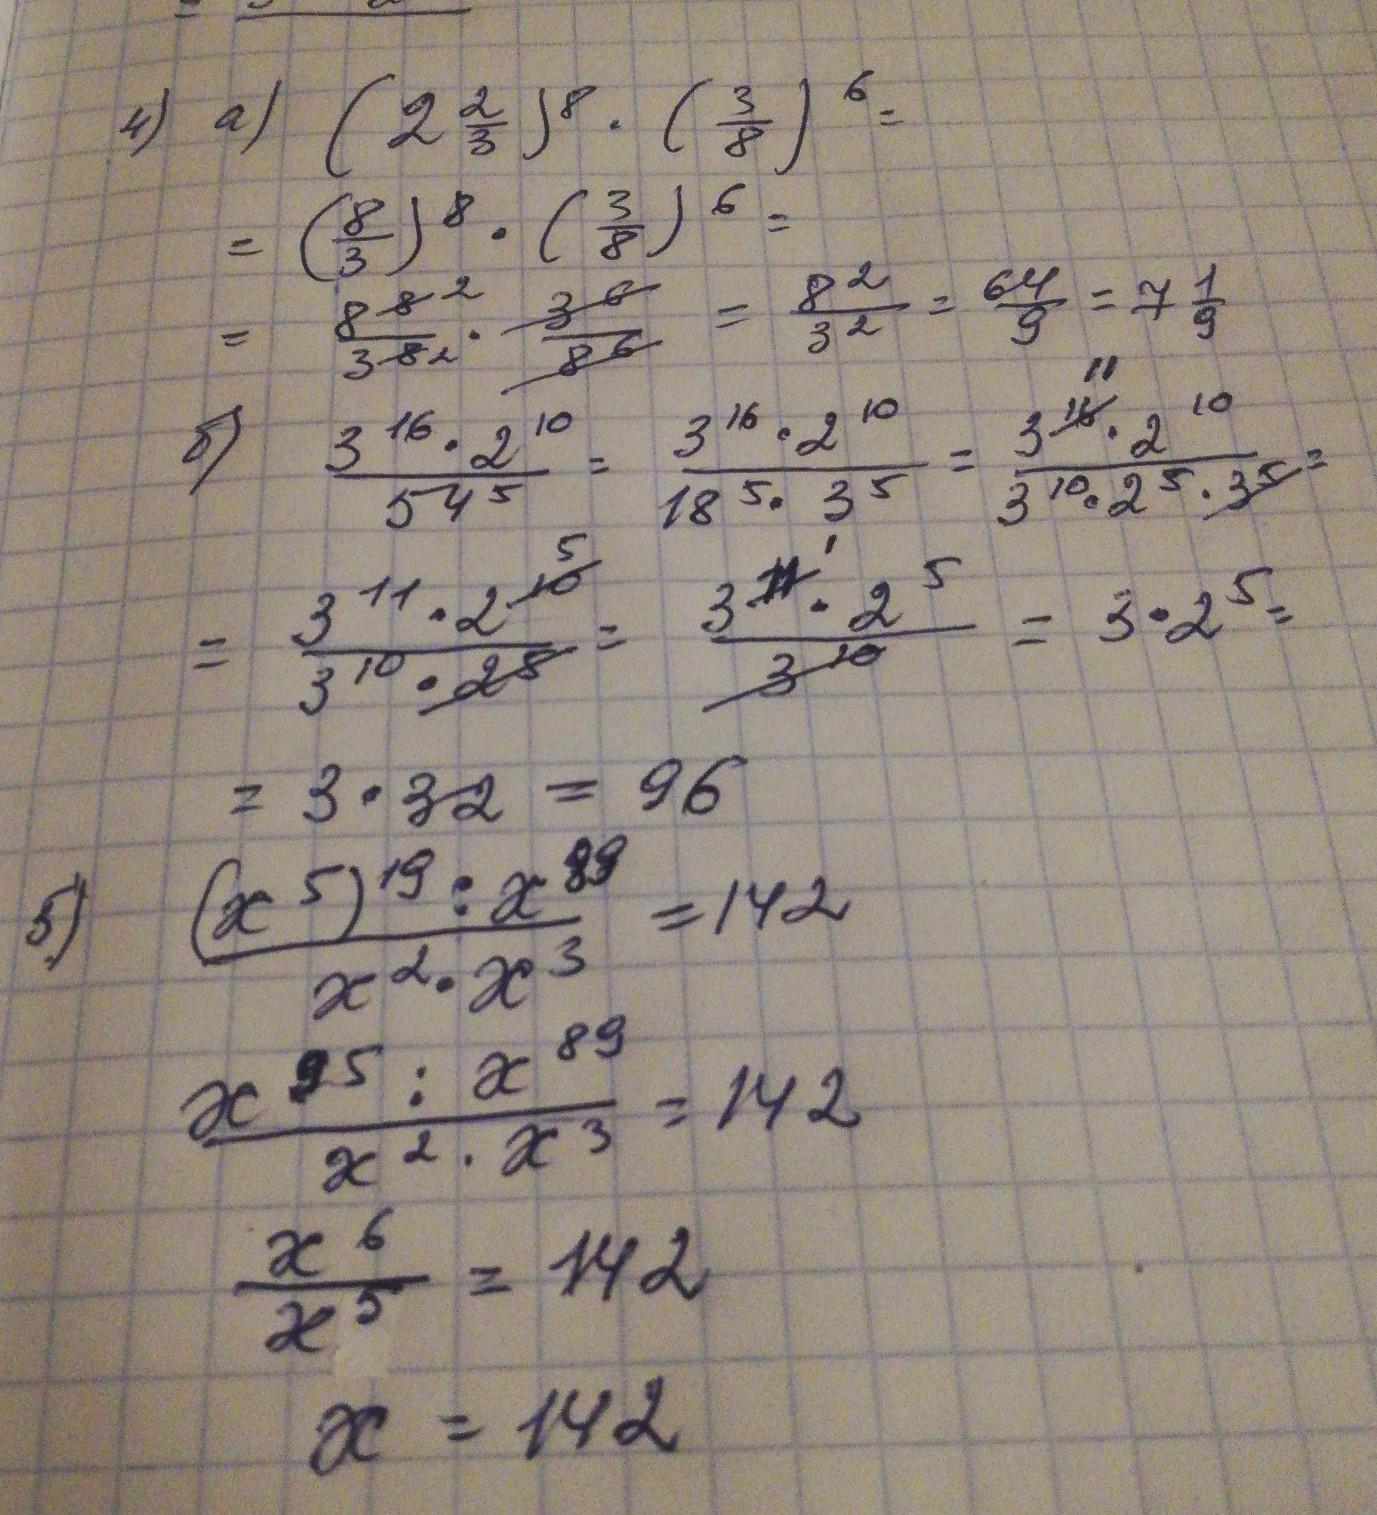 4) а) (2 2/3)^8 · (3/8)^6 =
= (8/3)^8 · (3/8)^6 =
= 8^8 2/3^8 2 · 3^6/8^6 = 8^2/3^2 = 64/9 = 7 1/9
б) 3^16 · 2^10/54^5 = 3^16 · 2^10/18^5 · 3^5 = 3^16 11 · 2^10/3^10 · 2^5 · 3^5 =
= 3^11 · 2^10 5/3^10 · 2^5 = 3^11 1 · 2^5/3^10 = 3 · 2^5 =
= 3 · 32 = 96
5) (x^5)^19 : x^89/x^2 · x^3 = 142
x^95 : x^89/x^2 · x^3 = 142
x^6/x^5 = 142
x = 142